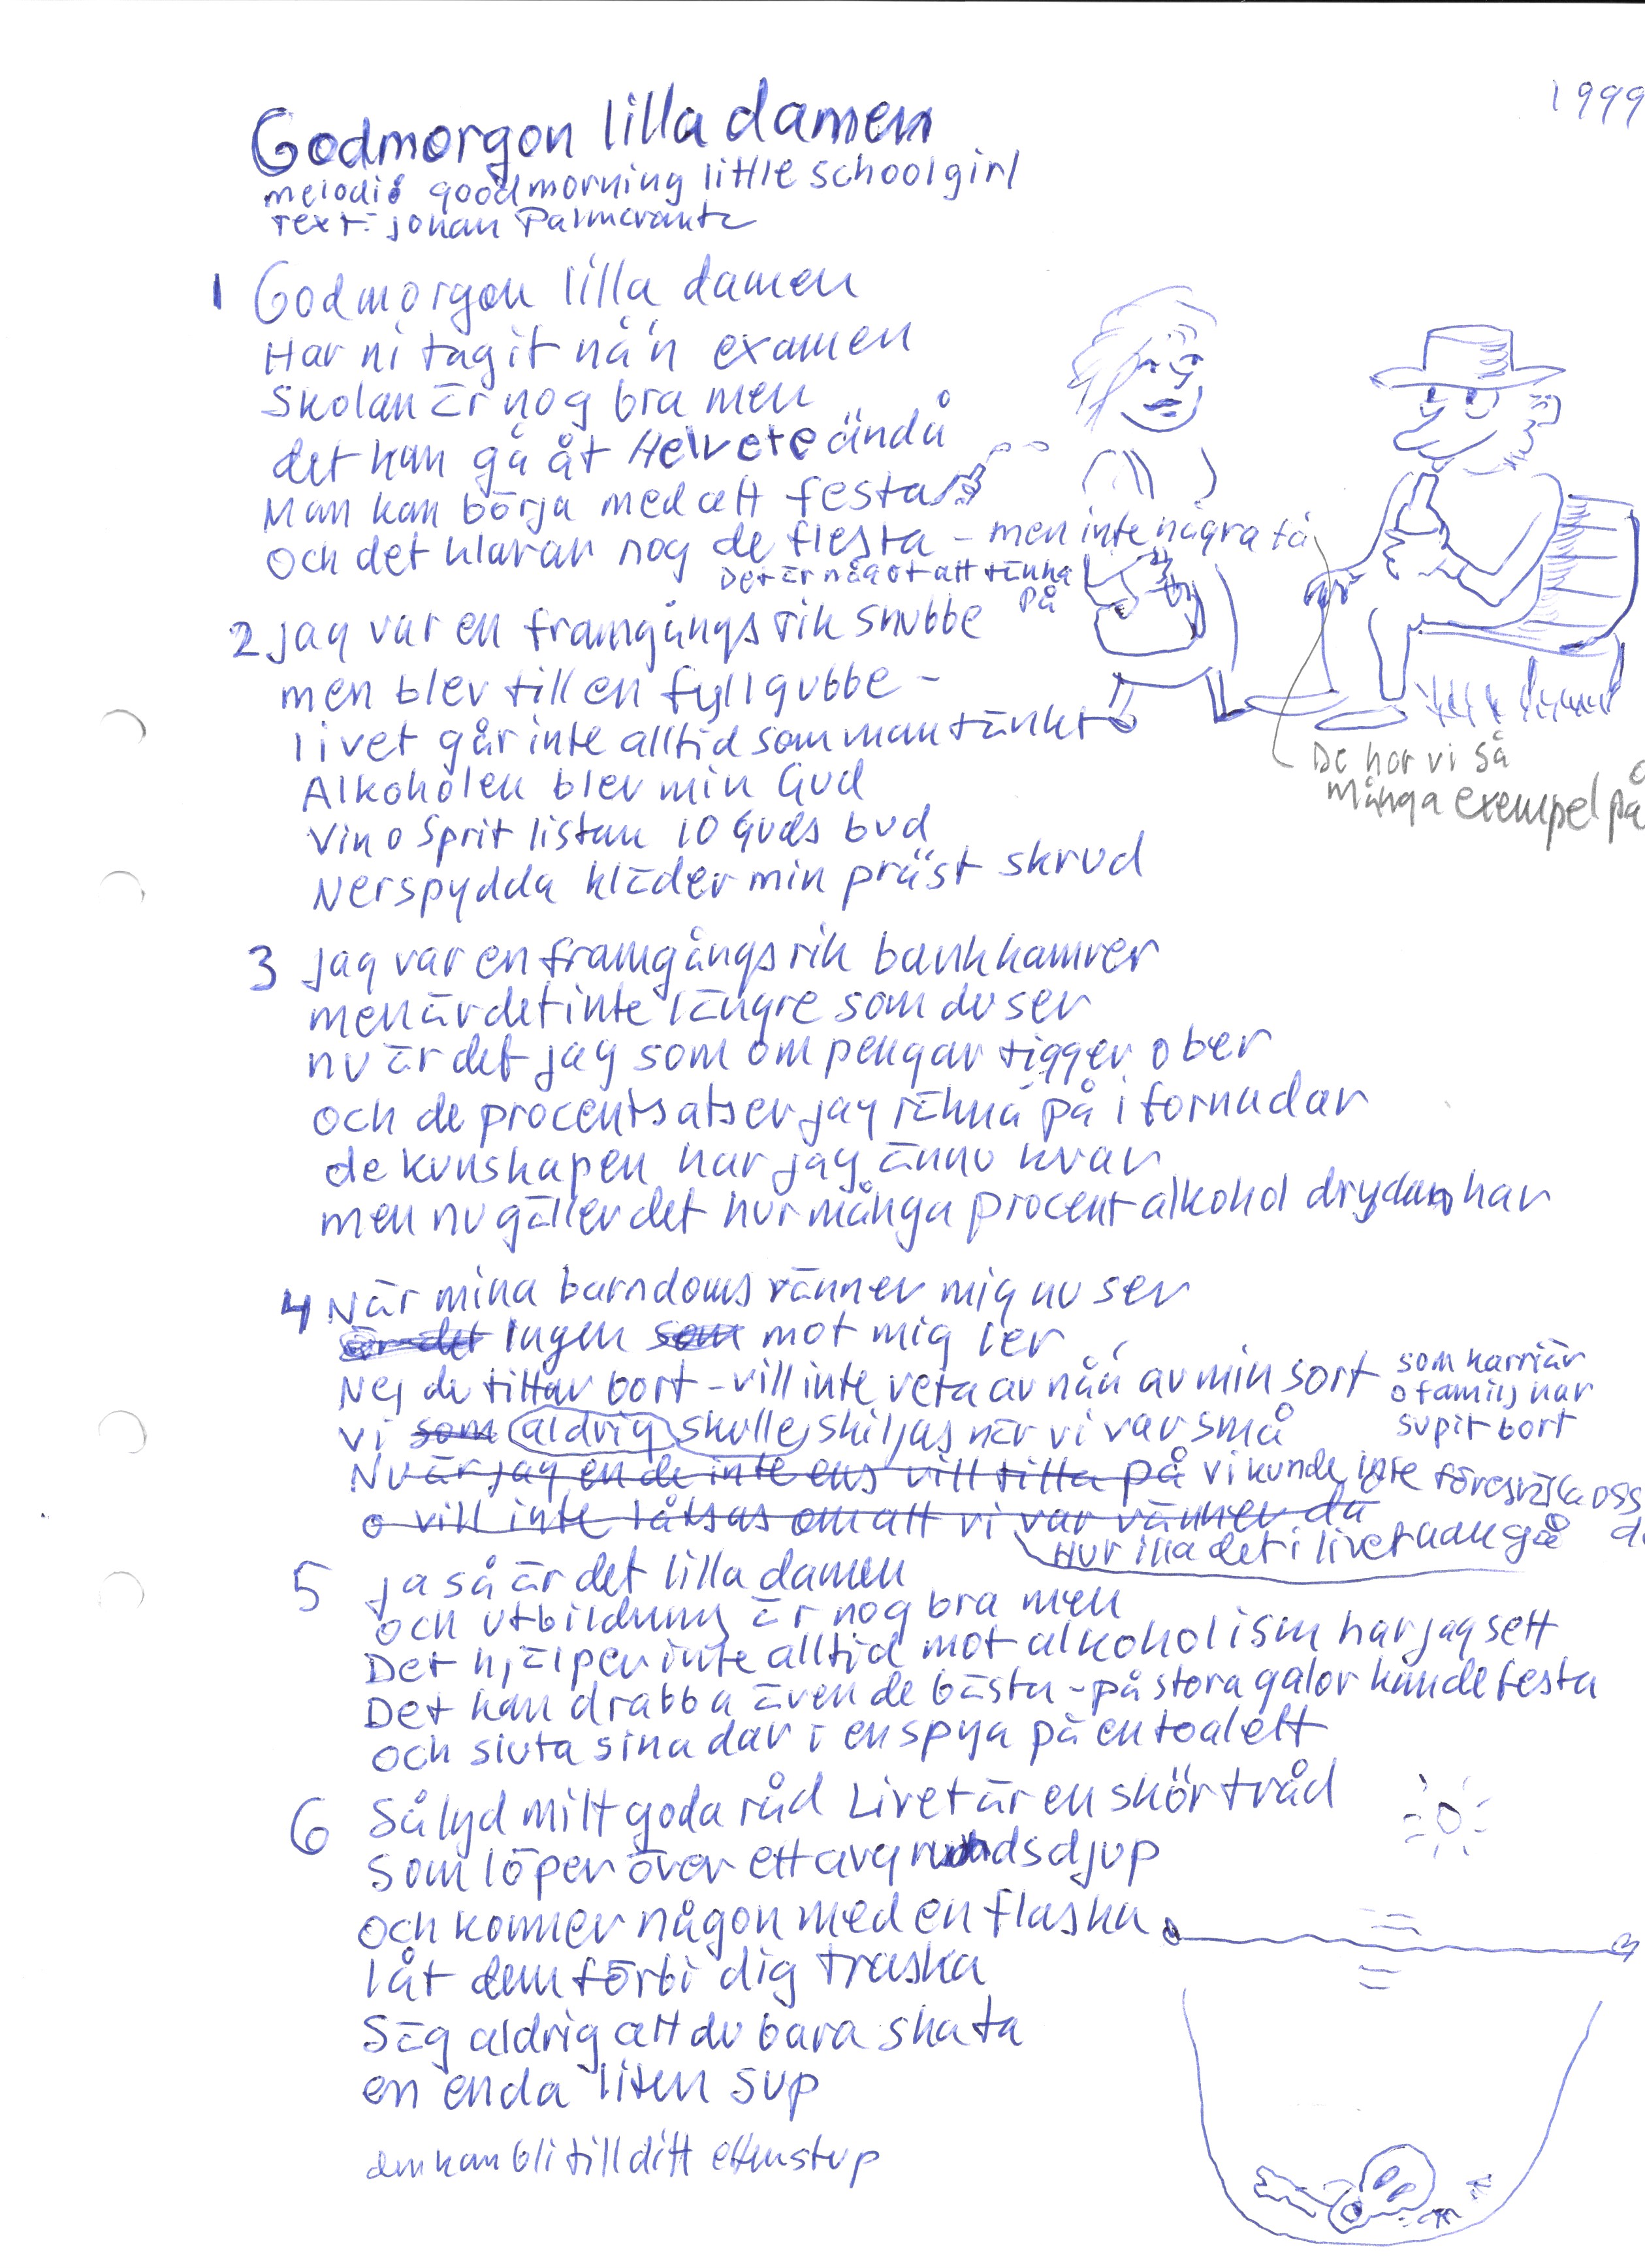 1999
Godmorgon lilla damen
melodi: goodmorning little schoolgirl
Text: Johan Palmcrantz
1 Godmorgon lilla damen
Har ni tagit nå'n examen
Skolan är nog bra men
det kan gå åt Helvete ändå
Man kan börja med att festa
och det klarar nog de flesta - men inte några få
Det är något att tänka
på
De har vi så
många exempel på
2 jag var en framgångsrik snubbe
men blev till en fyllgubbe -
livet går inte alltid som man tänkt
Alkoholen blev min Gud
Vin o Sprit listan 10 Guds bud
Nerspydda kläder min präst skrud
3 jag var en framgångsrik bankkamrer
men är det inte längre som du ser
nu är det jag som om pengar tigger o ber
och de procentsatser jag räkna på i fornudar
de kunskapen har jag ännu kvar
men nu gäller det hur många procent alkohol drycken har
4 När mina barndoms vänner mig nu ser
är det Ingen som mot mig ler
Nej de tittar bort - vill inte veta av nån av min sort som karriär
o familj har
supit bort
vi som aldrig skulle skiljas när vi var små
Nu är jag en de inte ens vill titta på vi kunde inte föreställa oss
o vill inte låtsas om att vi var vänner då
Hur illa det i livet kan gå
5 ja så är det lilla damen
och utbildning är nog bra men
Det hjälper inte alltid mot alkoholism har jag sett
Det kan drabba även de bästa - på stora galor kan de festa
och sluta sina dar i en spya på en toalett
6 Så lyd mitt goda råd Livet är en skör tråd
Som löper över ett avgrundsdjup
och kommer någon med en flaska
låt dem förbi dig traska
Säg aldrig att du bara ska ta
en enda liten sup
den kan bli till ditt ättestup